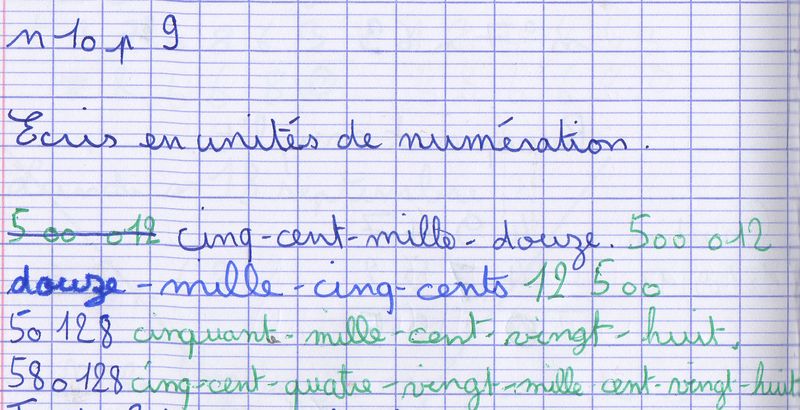 n 10 p 9
Ecris en unités de numération.
5 00 012 cinq-cent-mille-douze. 500 012
douze-mille-cinq-cents 12 500
50 128 cinquante-mille-cent-vingt-huit.
580 128 cinq-cent-quatre-vingt-mille cent-vingt-huit